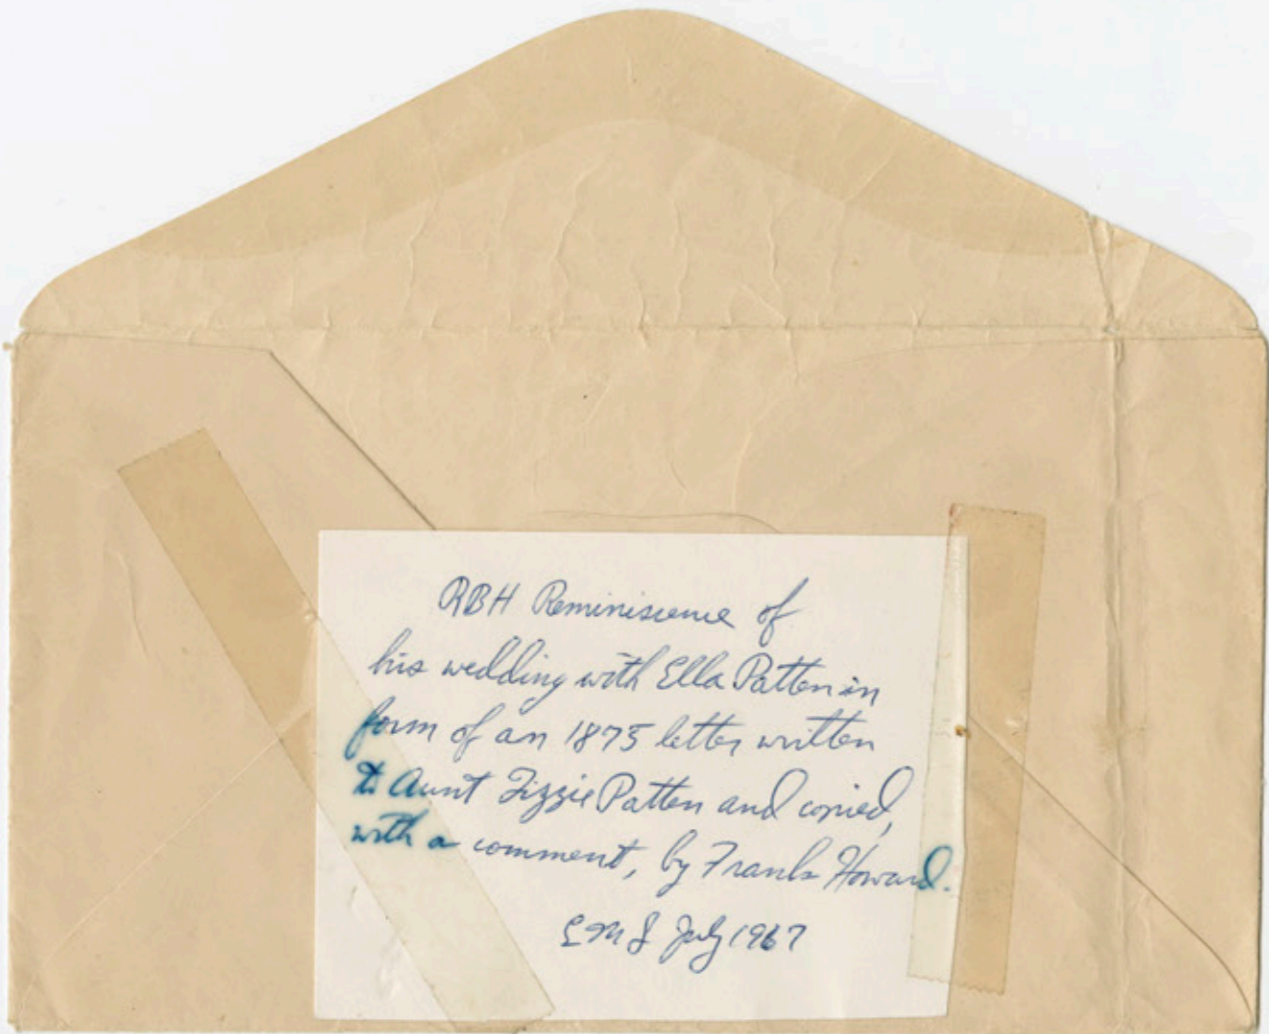 RBH Reminiscence of
his wedding with Ella Patten in
form of an 1875 letter written
to Aunt Lizzie Patten and copied,
with a comment, by Frank Howard.
July 1967